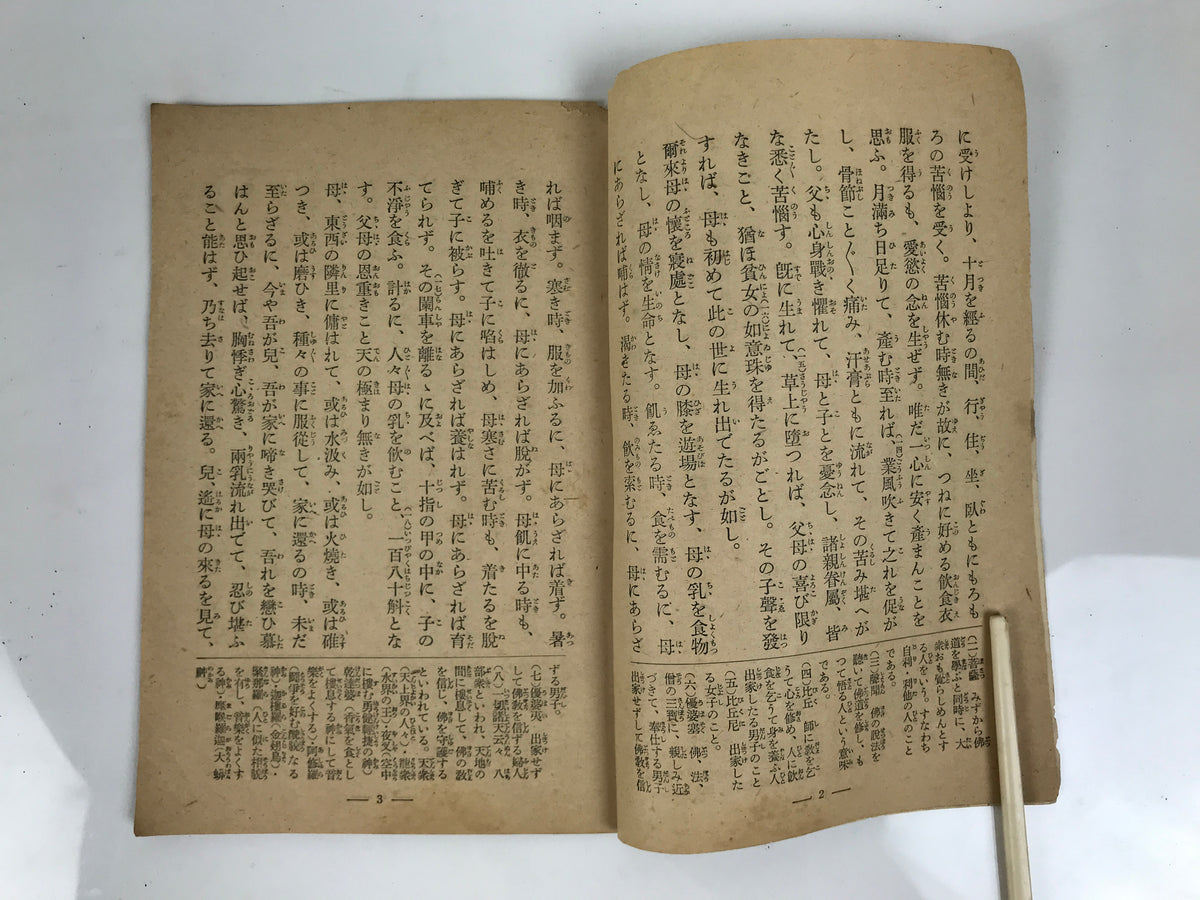 に受けしより、十月を經るの間、行、住、坐、臥ともにもろも
ろの苦惱を受く。苦惱休む時無きが故に、つねに好める飮食衣
服を得るも、愛慾の念を生ぜず。唯だ一心に安く產まんことを
思ふ。月滿ち日足りて、產む時至れば、(一四)業風吹きて之れを促が
し、骨節こと〴〵く痛み、汗膏ともに流れて、その苦み堪へが
たし。父も心身戰き懼れて、母と子とを憂念し、諸親眷屬、皆
な悉く苦惱す。既に生れて、(一五)草上に墮つれば、父母の喜び限り
なきごと、猶ほ貧女の(一六)如意珠を得たるがごとし。その子聲を發
すれば、母も初めて此の世に生れ出でたるが如し。
爾來母の懷を寢處となし、母の膝を遊場となす、母の乳を食物
となし、母の情を生命となす。飢ゑたる時、食を需むるに、母
にあらざれば哺はず。渴きたる時、飮を索むるに、母にあらざ
(二)菩薩 みずから佛
道を學ぶと同時に、大
衆おも覺らしめんとす
る人をいう。すなわち
自利・利他の人のこと
である。
(三)聲聞 佛の說法を
聽いて佛道を修し、も
つて悟る人という意味
である。
(四)比丘 師に敎を乞
うて心を修め、人に飮
食を乞うて身を養ふ人
出家したる男子のこと
(五)比丘尼 出家した
る女子のこと。
(六)優婆塞 佛、法、
僧の三寶に、親しみ近
づきて、奉仕する男子
出家せずして佛敎を信
2
れば咽まず。寒き時、服を加ふるに、母にあらざれば着ず。暑
き時、衣を徹るに、母にあらざれば脫がず。母飢に中る時も、
哺めるを吐きて子に啗はしめ、母寒さに苦む時も、着たるを脫
ぎて子に被らす。母にあらざれば養はれず。母にあらざれば育
てられず。その(一七)闌車を離るゝに及べば、十指の甲の中に、子の
不淨を食ふ。計るに、人々母の乳を飮むこと、(一八)一百八十斛とな
す。父母の恩重きこと天の極まり無きが如し。
母、東西の隣里に傭はれて、或は水汲み、或は火燒き、或は碓
つき、或は磨ひき、種々の事に服從して、家に還るの時、未だ
至らざるに、今や吾が兒、吾が家に啼き哭びて、吾れを戀ひ慕
はんと思ひ起せば、胸悸ぎ心驚き、兩乳流れ出でて、忍び堪ふ
ること能はず、乃ち去りて家に還る。兒、遙に母の來るを見て、
ずる男子。
(七)優婆夷 出家せず
して佛敎を信ずる婦人
(八)一切諸天云々 八
部衆といわれ、天地の
間に棲息して、佛の敎
を信し、佛を守護する
といわれている。天衆
(天上界の人々)・龍衆
(水界の王)・夜叉(空中
に棲む勇健輕捷の神)
乾達婆(香氣を食とし
て棲息する神にして音
樂をよくする)・阿修羅
(鬪爭を好む醜貌なる
神)・迦樓羅(金翅鳥)・
緊那羅(人に似た相貌
を有し、音樂をよくす
る神)・摩睺羅迦(大蟒
神)
3